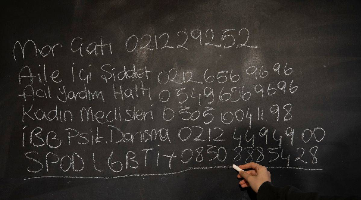 Mor Çatı 0212 292 52
Aile İçi Şiddet 0212 656 96 96
Acil Yardım Hattı 0 549 656 96 96
Kadın Meclisleri 0 505 1004 11 98
İBB Psik. Danışma 0212 449 49 00
SPOD LGBTİ+ 0850 888 54 28